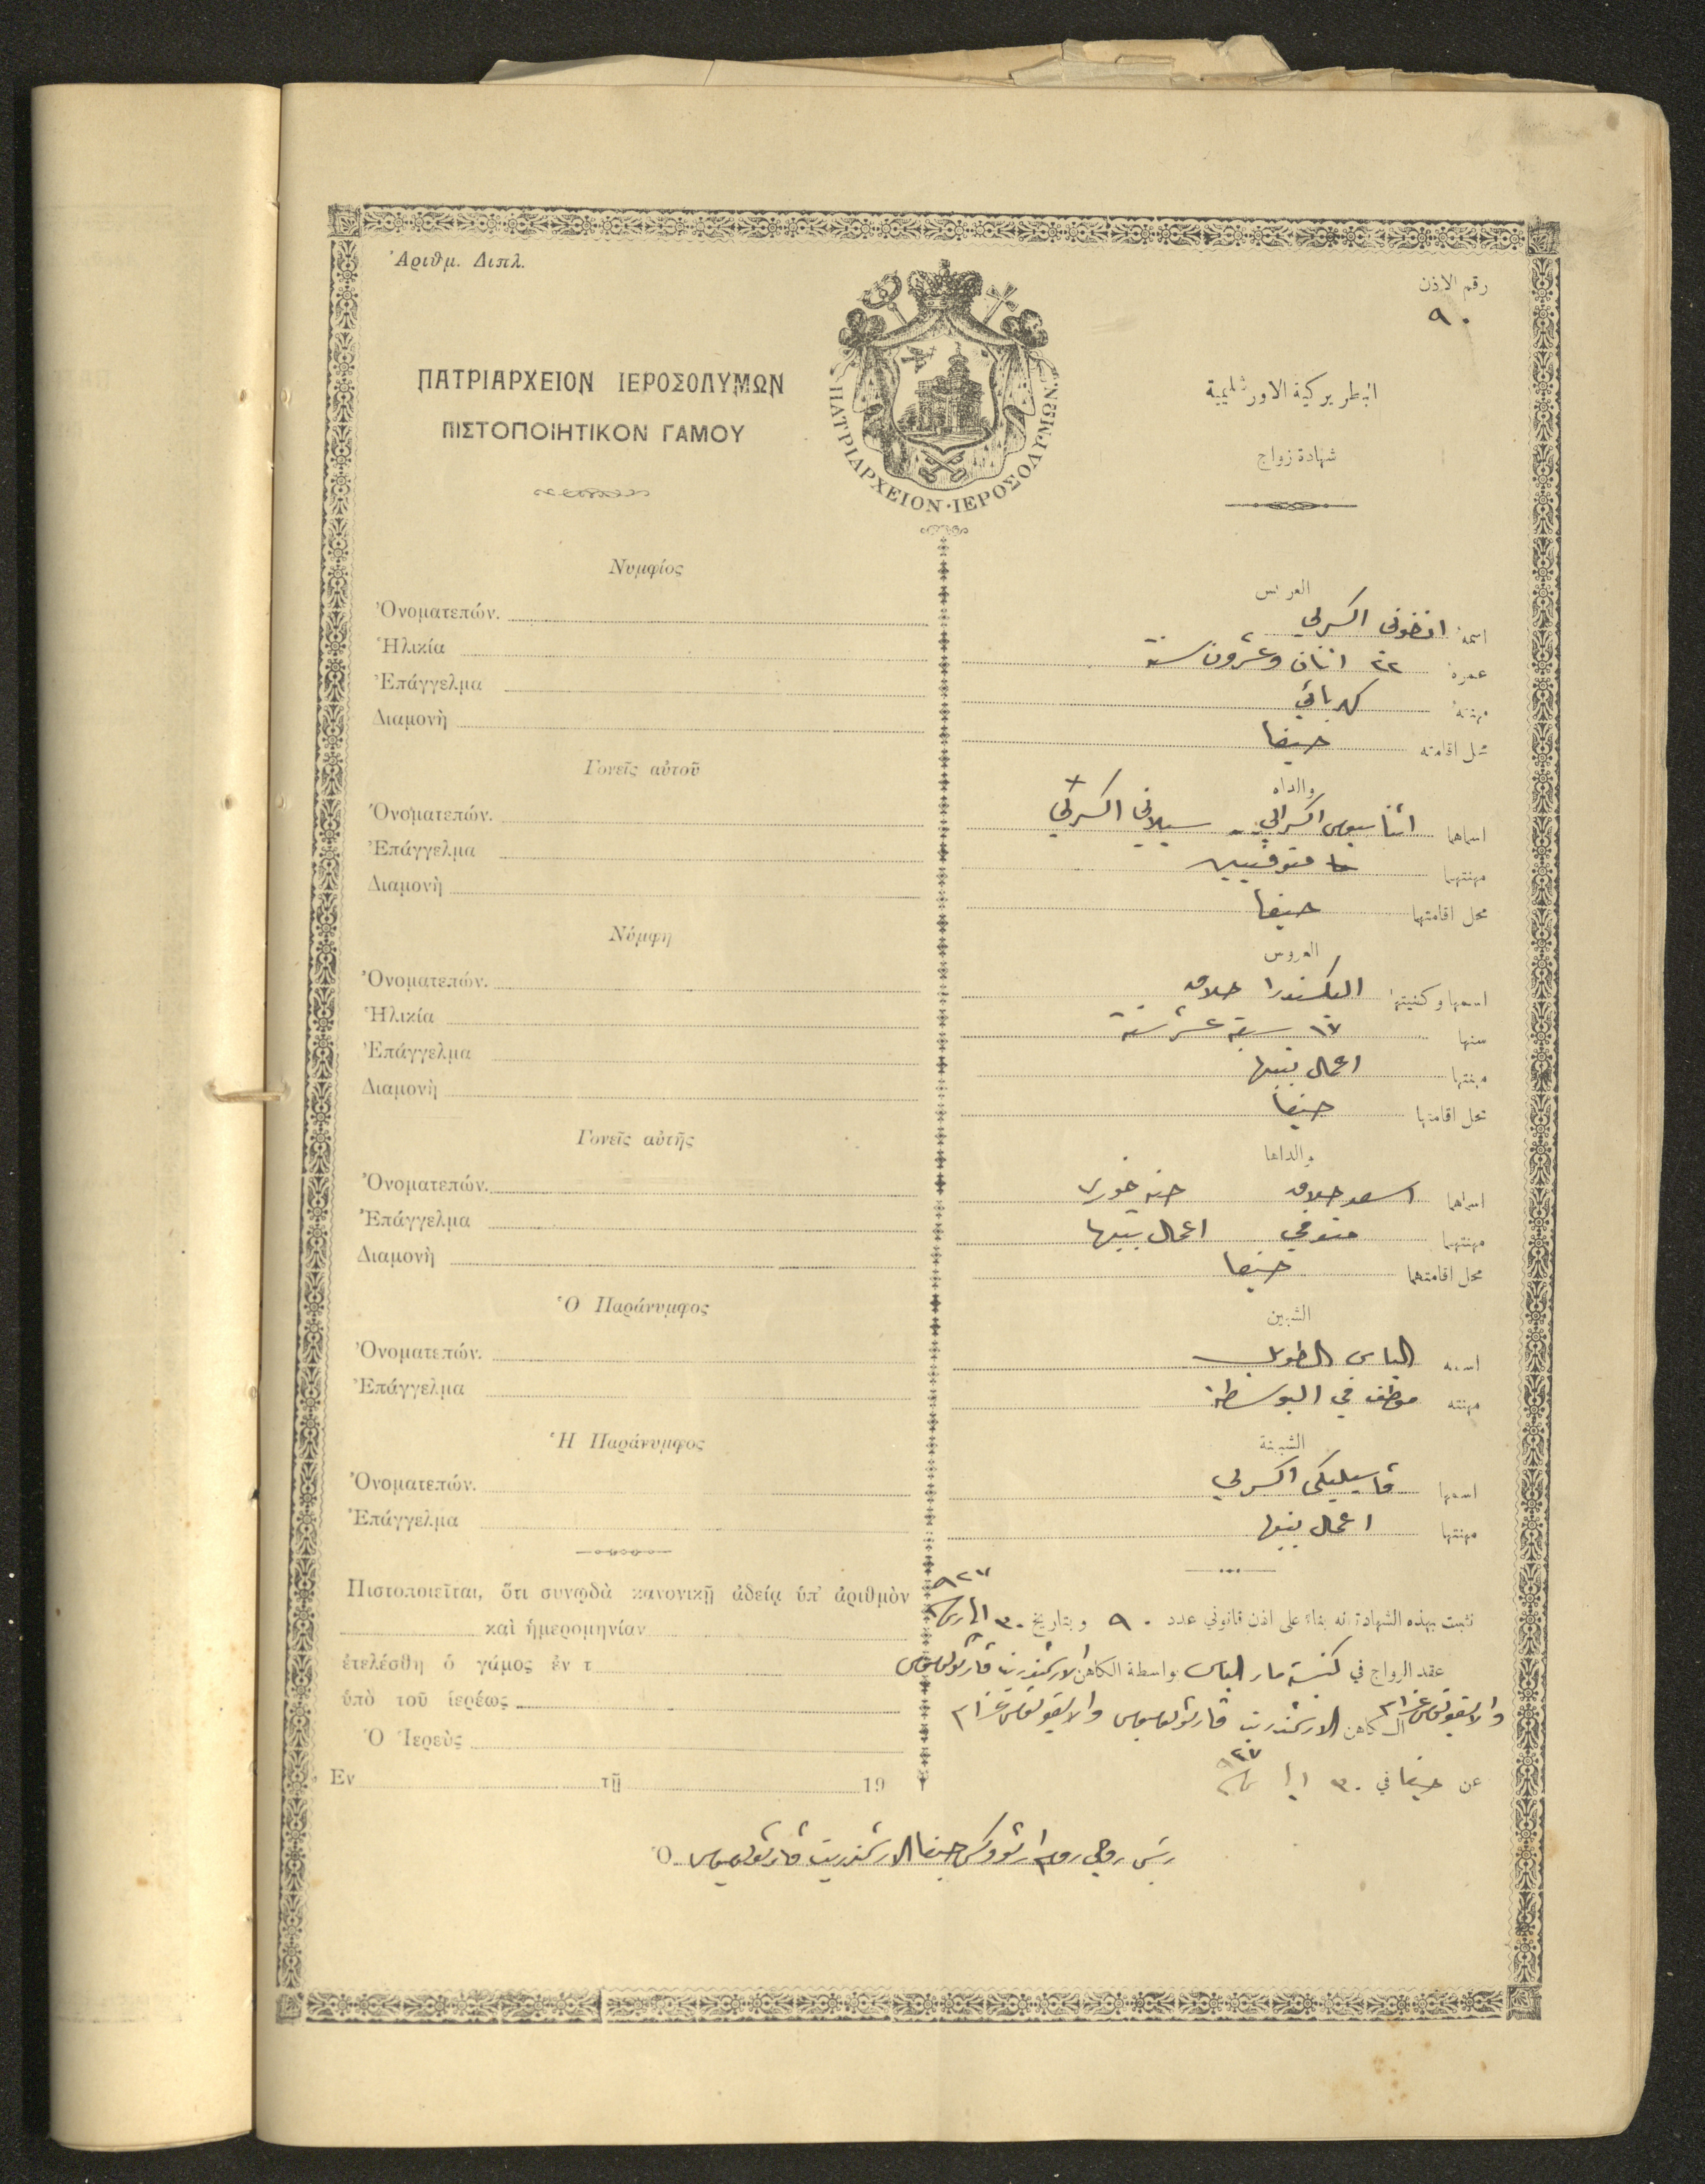 Ἀριθμ. Διπλ.
رقم الاذن
٩٠
ΠΑΤΡΙΑΡΧΕΙΟΝ ΙΕΡΟΣΟΛΥΜΩΝ
ΠΙΣΤΟΠΟΙΗΤΙΚΟΝ ΓΑΜΟΥ
ΠΑΤΡΙΑΡΧΕΙΟΝ·ΙΕΡΟΣΟΛΥΜΩΝ
البطريركية الاورشليمية
شهادة زواج
Νυμφίος
Ὀνοματεπών.
Ἡλικία
Ἐπάγγελμα
Διαμονὴ
Γονεῖς αὐτοῦ
Ὀνοματεπών.
Ἐπάγγελμα
Διαμονὴ
Νύμφη
Ὀνοματεπών.
Ἡλικία
Ἐπάγγελμα
Διαμονὴ
Γονεῖς αὐτῆς
Ὀνοματεπών.
Ἐπάγγελμα
Διαμονὴ
Ὁ Παράνυμφος
Ὀνοματεπών.
Ἐπάγγελμα
Ἡ Παράνυμφος
Ὀνοματεπών.
Ἐπάγγελμα
Πιστοποιεῖται, ὅτι συνῳδὰ κανονικῇ ἀδείᾳ ὑπ' ἀριθμὸν
καὶ ἡμερομηνίαν
ἐτελέσθη ὁ γάμος ἐν τ
ὑπὸ τοῦ ἱερέως
Ὁ Ἱερεὺς
Ἐν τῇ 19
العريس
اسمه
عمره ٢٢ اثنان وعشرون سنة
مهنته كهربائي
محل اقامته حيفا
والداه
اسماهما اثناسيوس
مهنتهما متوفيين
محل اقامتهما حيفا
العروس
اسمها وكنيتها الكسندرا حلاق
سنها ١٧ سبعة عشر سنة
مهنتها اعمال بيتها
محل اقامتها حيفا
والداها
اسماهما اسعد حلاق حنه خوري
مهنتهما متوفي اعمال بيتها
محل اقامتهما حيفا
الشبين
اسمه الياس الطويل
مهنته موظف في البوسطة
الشبينة
اسمها ڤاسيليكي
مهنتها اعمال بيتها
٩٢٧
تثبت بهذه الشهادة انه بناء على اذن قانوني عدد ٩٠ وبتاريخ ٣٠
عقد الزواج في كنيسة مار الياس بواسطة الكاهن الارشمندريت
الكاهن الارشمندريت
٩٢٧
عن حيفا في ٣٠
Ὁ رئيس روحي روم ارثوذكس حيفا الارشمندريت